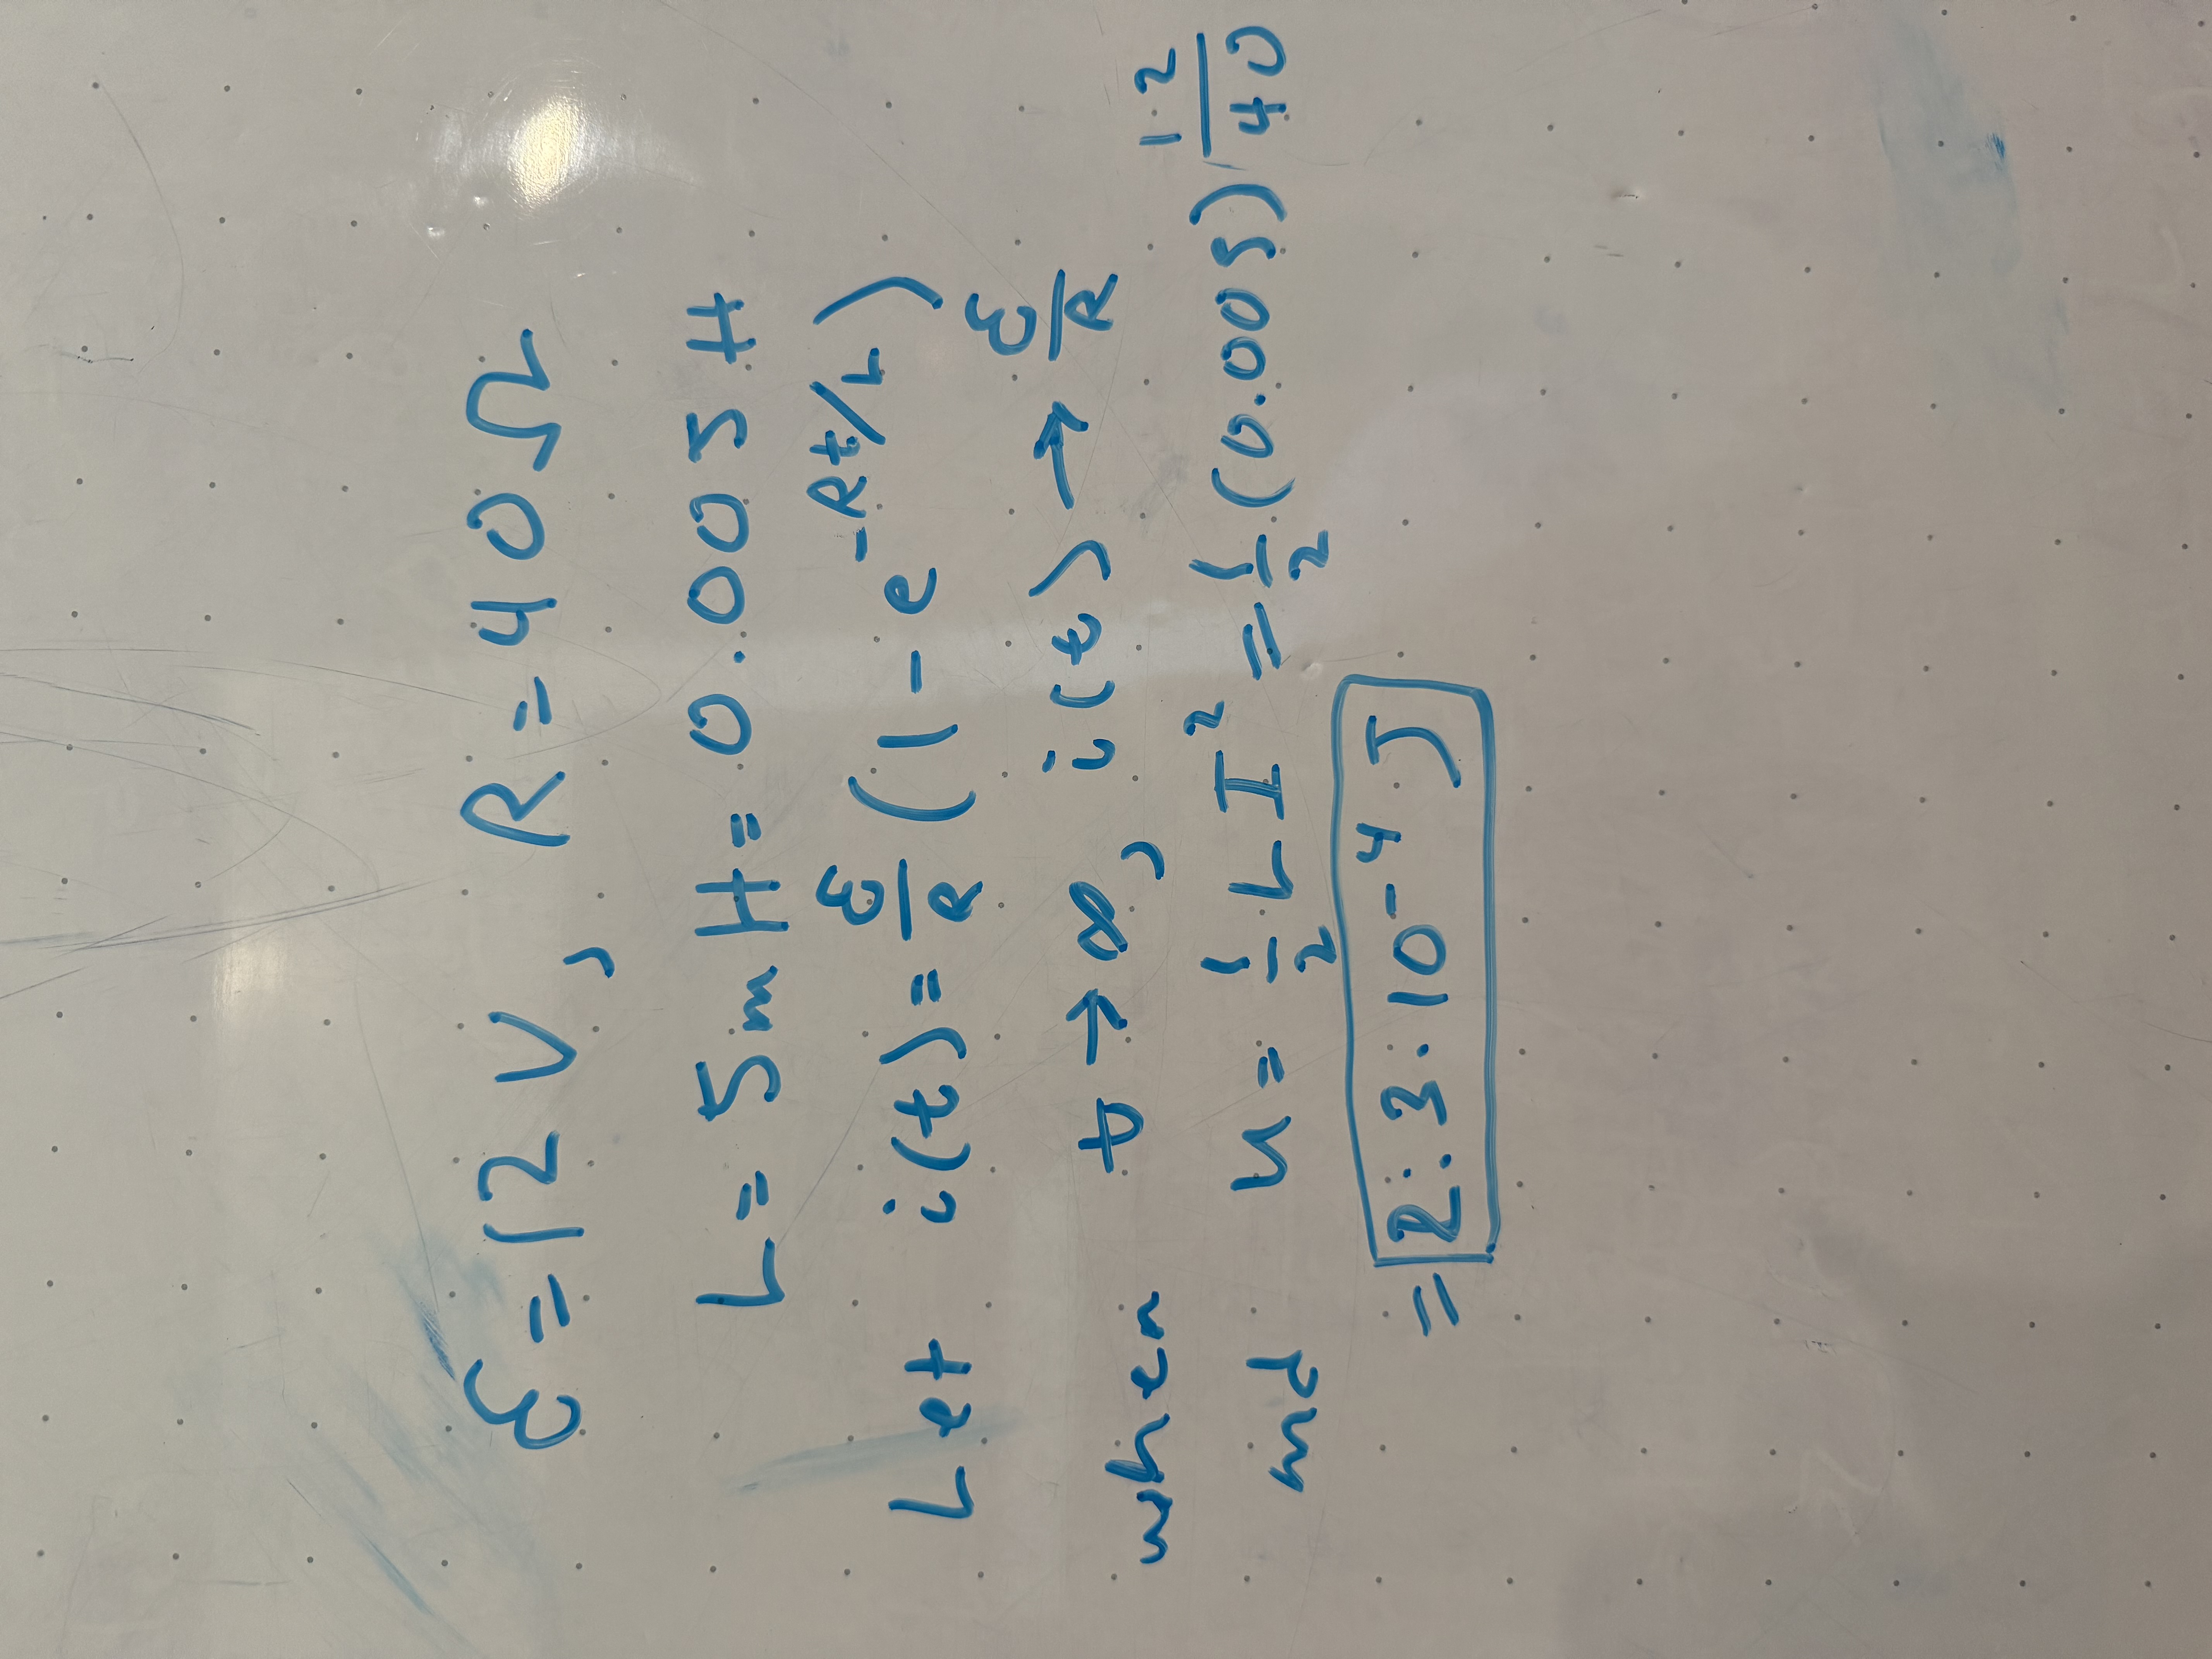 ℰ = 12 V, R = 40 Ω
L = 5 mH = 0.005 H
Let i(t) = ℰ/R (1 - e^(-Rt/L))
when t → ∞, i(t) → ℰ/R
and U = 1/2 L I² = 1/2 (0.005) 12/40
= 2.3 · 10⁻⁴ J